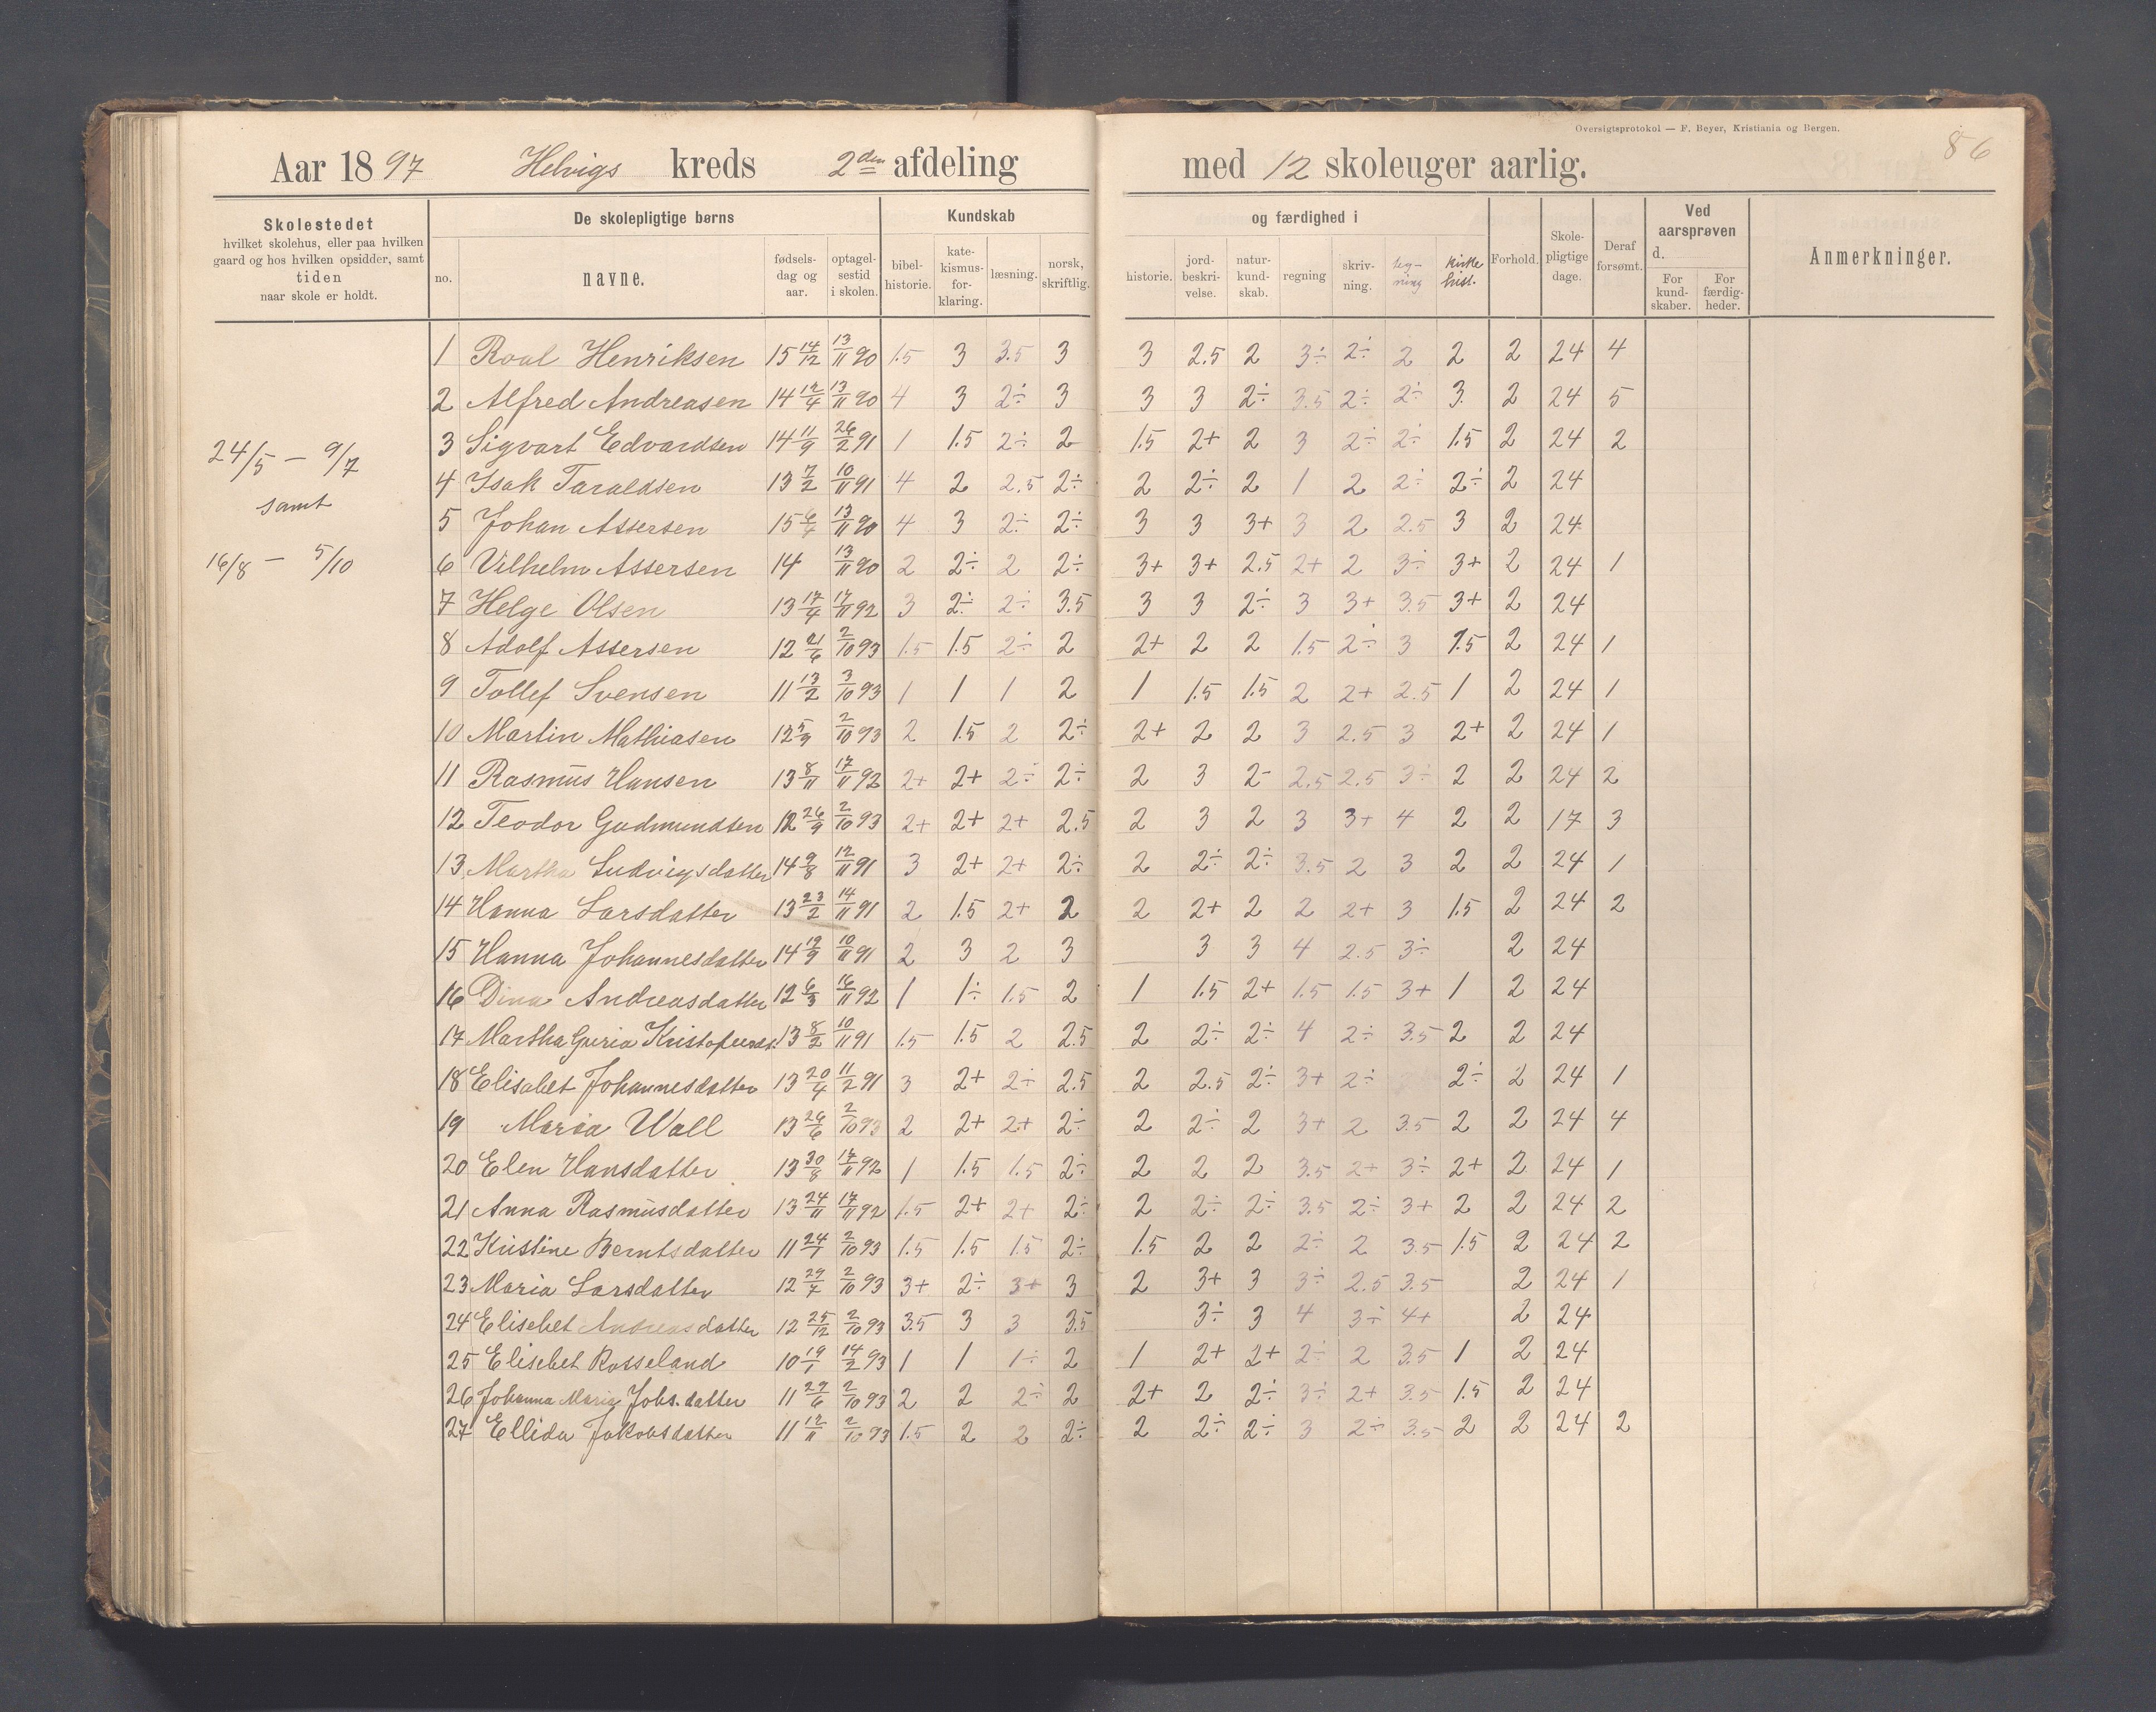 Oversigtsprotokol — F. Beyer, Kristiania og Bergen.
86
Aar 1897 Helvigs kreds 2den afdeling med 12 skoleuger aarlig.
Skolestedet
hvilket skolehus, eller paa hvilken
gaard og hos hvilken opsidder, samt
tiden
naar skole er holdt.
De skolepligtige børns
no. navne. fødsels-dag og aar. optagel-sestid i skolen.
Kundskab og færdighed i
bibel-historie. kate-kismus-for-klaring. læsning. norsk, skriftlig. historie. jord-beskri-velse. natur-kund-skab. regning skriv-ning. teg-ning kirke hist.
Forhold. Skole-pligtige dage. Deraf forsømt.
Ved aarsprøven d.
For kund-skaber. For færdig-heder.
Anmerkninger.
24/5 — 9/7
samt
16/8 — 5/10
1 Roal Henriksen 15 14/12 13/11 90 1.5 3 3.5 3 3 2.5 2 3÷ 2÷ 2 2 2 24 4
2 Alfred Andreasen 14 12/4 13/11 90 4 3 2÷ 3 3 3 2÷ 3.5 2÷ 2÷ 3 2 24 5
3 Sigvart Edvardsen 14 11/9 26/2 91 1 1.5 2÷ 2 1.5 2+ 2 3 2÷ 2÷ 1.5 2 24 2
4 Isak Taraldsen 13 7/2 10/11 91 4 2 2.5 2÷ 2 2÷ 2 1 2 2÷ 2÷ 2 24
5 Johan Assersen 15 6/4 13/11 90 4 3 2÷ 2÷ 3 3 3+ 3 2 2.5 3 2 24
6 Vilhelm Assersen 14 13/11 90 2 2÷ 2 2÷ 3+ 3+ 2.5 2+ 2 3÷ 3+ 2 24 1
7 Helge Olsen 13 17/4 17/11 92 3 2÷ 2÷ 3.5 3 3 2÷ 3 3+ 3.5 3+ 2 24
8 Adolf Assersen 12 21/6 2/10 93 1.5 1.5 2÷ 2 2+ 2 2 1.5 2÷ 3 1.5 2 24 1
9 Tollef Svensen 11 13/2 3/10 93 1 1 1 2 1 1.5 1.5 2 2+ 2.5 1 2 24 1
10 Martin Mathiasen 12 5/9 2/10 93 2 1.5 2 2÷ 2+ 2 2 3 2.5 3 2+ 2 24 1
11 Rasmus Hansen 13 8/11 17/11 92 2+ 2+ 2÷ 2÷ 2 3 2- 2.5 2.5 3÷ 2 2 24 2
12 Teodor Gudmundsen 12 26/9 2/10 93 2+ 2+ 2+ 2.5 2 3 2 3 3+ 4 2 2 17 3
13 Martha Ludvigsdatter 14 9/8 12/11 91 3 2+ 2+ 2÷ 2 2÷ 2÷ 3.5 2 3 2 2 24 1
14 Hanna Larsdatter 13 23/2 14/11 91 2 1.5 2+ 2 2 2+ 2 2 2+ 3 1.5 2 24 2
15 Hanna Johannesdatter 14 19/9 10/11 91 2 3 2 3 3 3 4 2.5 3÷ 2 24
16 Dina Andreasdatter 12 6/3 16/11 92 1 1÷ 1.5 2 1 1.5 2+ 1.5 1.5 3+ 1 2 24
17 Martha Guria Kristofersdt. 13 8/2 10/11 91 1.5 1.5 2 2.5 2 2÷ 2÷ 4 2÷ 3.5 2 2 24
18 Elisabet Johannesdatter 13 20/4 11/2 91 3 2+ 2÷ 2.5 2 2.5 2÷ 3+ 2÷ 2÷ 2 24 1
19 Maria Wall 13 26/6 2/10 93 2 2+ 2+ 2÷ 2 2÷ 2 3+ 2 3.5 2 2 24 4
20 Elen Hansdatter 13 30/8 17/11 92 1 1.5 1.5 2÷ 2 2 2 3.5 2+ 3÷ 2+ 2 24 1
21 Anna Rasmusdatter 13 24/11 17/11 92 1.5 2+ 2+ 2÷ 2 2÷ 2÷ 3.5 2÷ 3+ 2 2 24 2
22 Kristine Berntsdatter 11 24/1 2/10 93 1.5 1.5 1.5 2÷ 1.5 2 2 2÷ 2 3.5 1.5 2 24 2
23 Maria Larsdatter 12 29/7 2/10 93 3+ 2÷ 3+ 3 2 3+ 3 3÷ 2.5 3.5 2 24 1
24 Elisebet Andreasdatter 12 25/12 2/10 93 3.5 3 3 3.5 3÷ 3 4 3÷ 4+ 2 24
25 Elisebet Rosseland 10 19/1 14/2 93 1 1 1÷ 2 1 2+ 2+ 2÷ 2 3.5 1 2 24
26 Johanna Maria Johs.datter 11 29/6 2/10 93 2 2 2÷ 2 2+ 2 2÷ 3÷ 2+ 3.5 1.5 2 24
27 Ellida Jakobsdatter 11 12/11 2/10 93 1.5 2 2 2÷ 2 2÷ 2÷ 3 2÷ 3.5 2 2 24 2